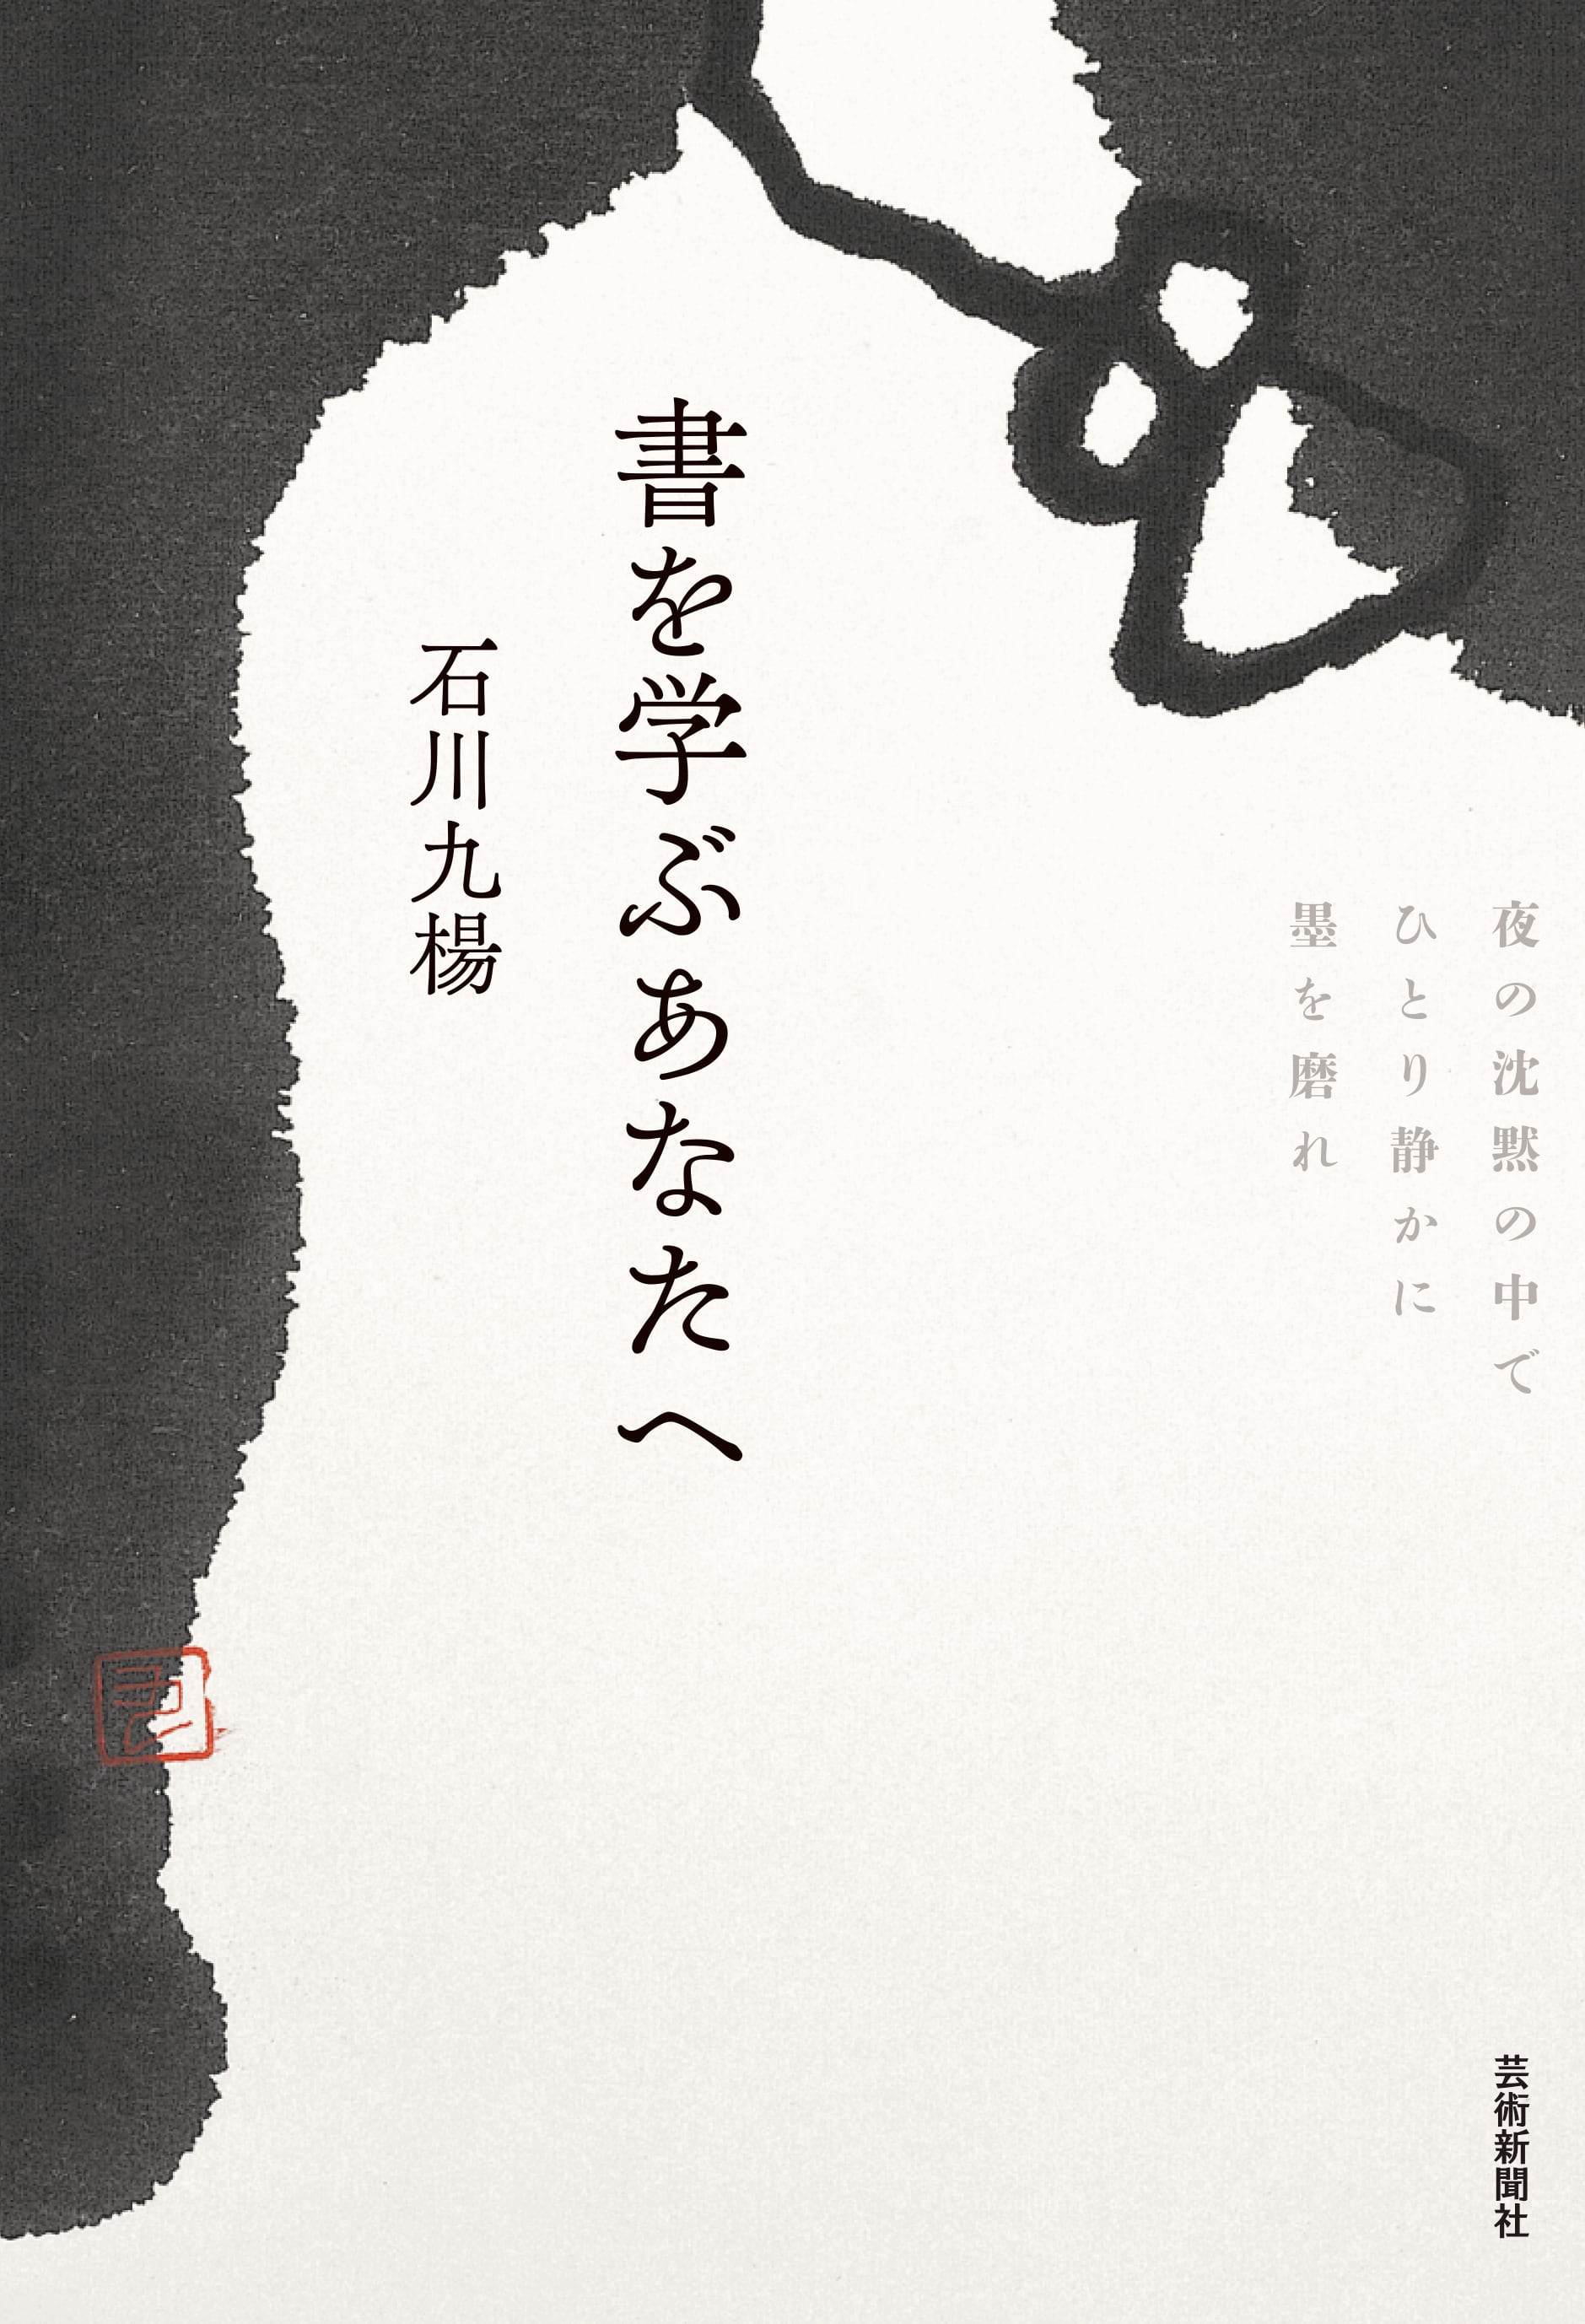 夜の沈黙の中で
ひとり静かに
墨を磨れ
書を学ぶあなたへ
石川九楊
芸術新聞社